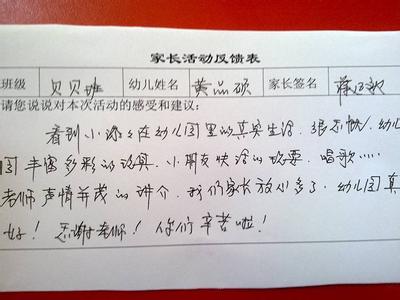 家长活动反馈表
班级 贝贝班 幼儿姓名 黄品硕 家长签名
请您说说对本次活动的感受和建议：
看到小添々在幼儿园里的真实生活，很欣慰，幼儿
园丰富多彩的玩具，小朋友快活的玩耍，唱歌……
老师声情并茂的讲介，我们家长放心多了，幼儿园真
好！感谢老师！你们辛苦啦！